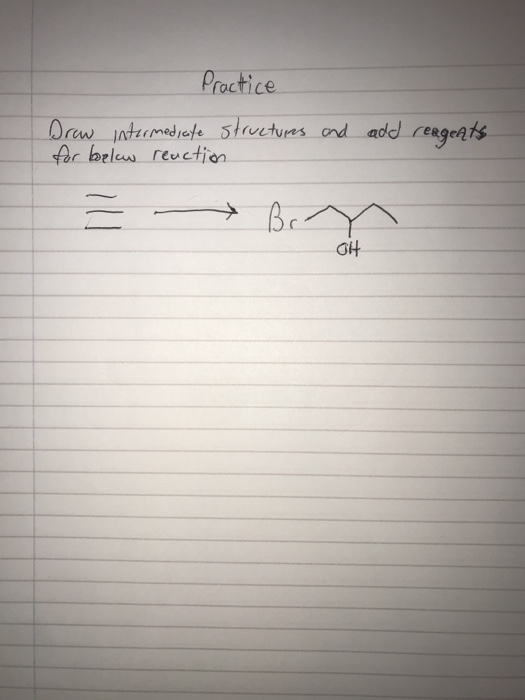 Practice
Draw intermediate structures and add reagents
for below reaction
Br
OH